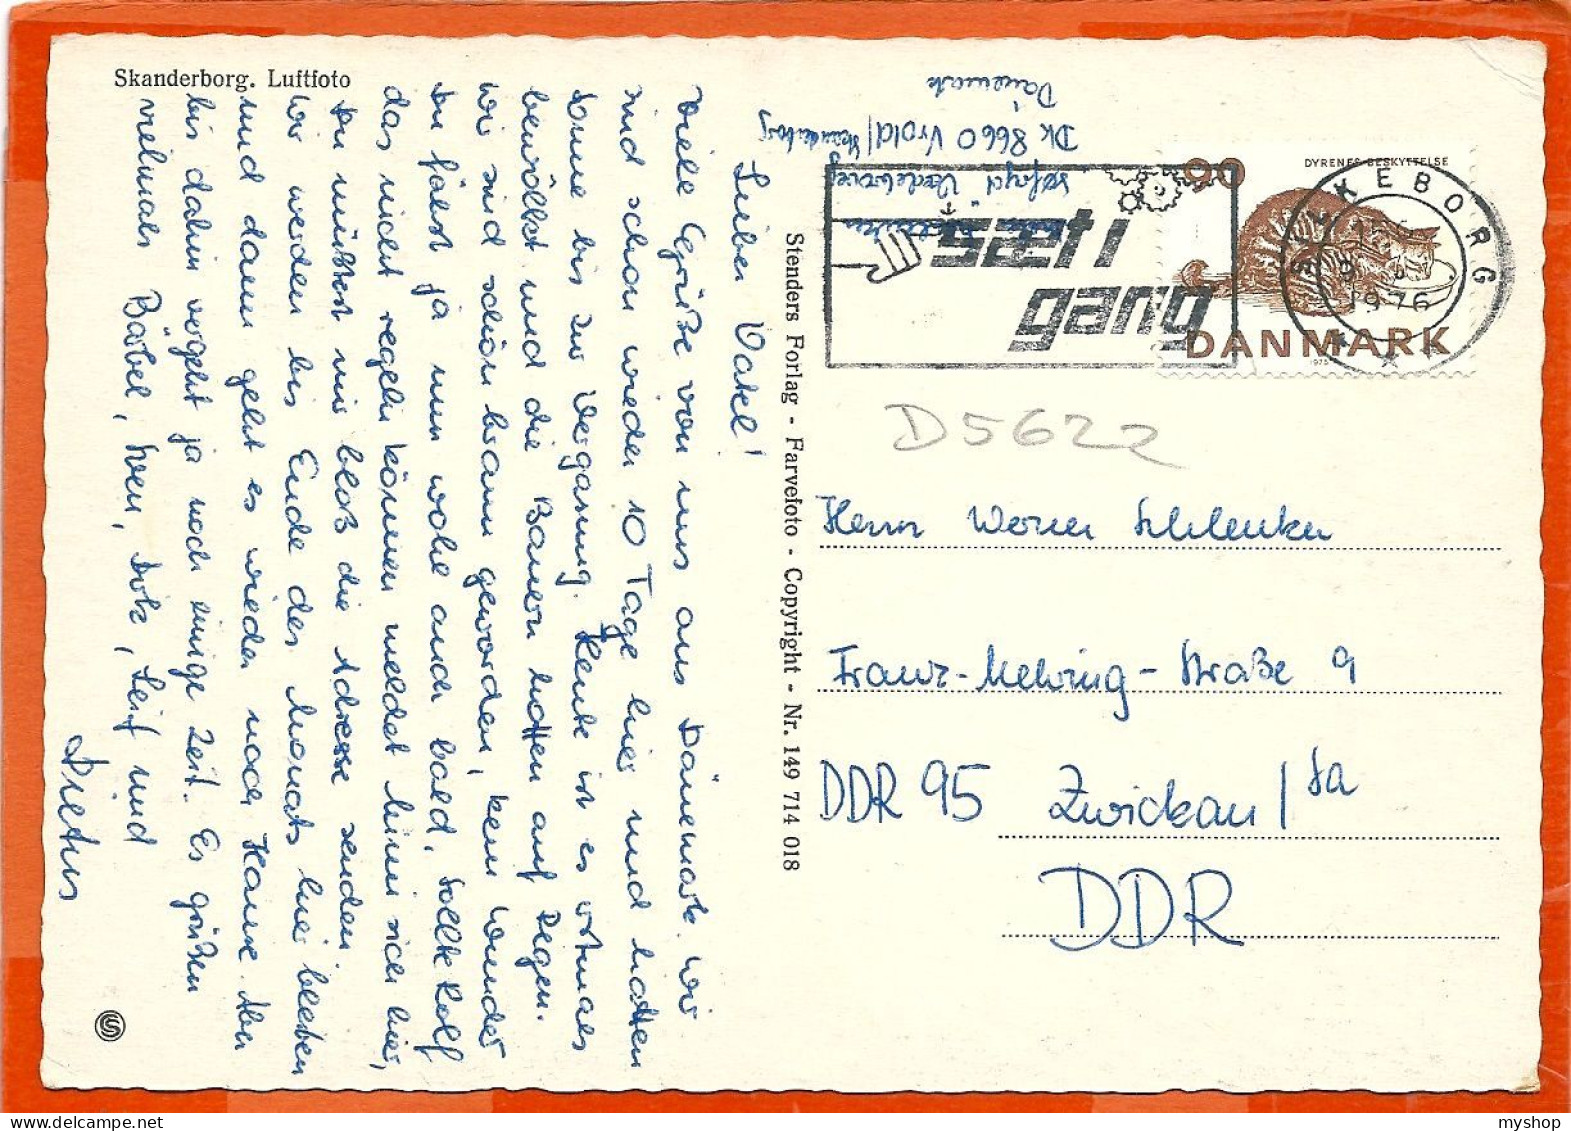 Skanderborg. Luftfoto
Lieber Vater!
Viele Grüße von uns aus Dänemark. Wir
sind schon wieder 10 Tage hier und hatten
Sonne bis zur Vergasung. Heute ist es erstmals
bewölkt und die Bauern hoffen auf Regen.
Wir sind schön braun geworden, kein Wunder
Du fährst ja nun wohl auch bald. Sollte Rolf
das nicht regeln können meldet hinni sich hier,
Du müßtest mir bloß die Adresse senden.
Wir werden bis Ende des Monats hier bleiben
und dann geht es wieder nach Hause. Aber
bis dahin vergeht ja noch einige Zeit. Es grüßen
vielmals Bärbel, Sven, Leif und
Dieter
Stenders Forlag - Farvefoto - Copyright - Nr. 149 714 018
Vrold/Skanderborg
DK 8660
Dänemark
sæt i
gang
90
DYRENES BESKYTTELSE
DANMARK
1975
SILKEBORG
1976
D5622
Herrn Werner Schlenker
Franz-Mehring-Straße 9
DDR 95 Zwickau/Sa
DDR
myshop